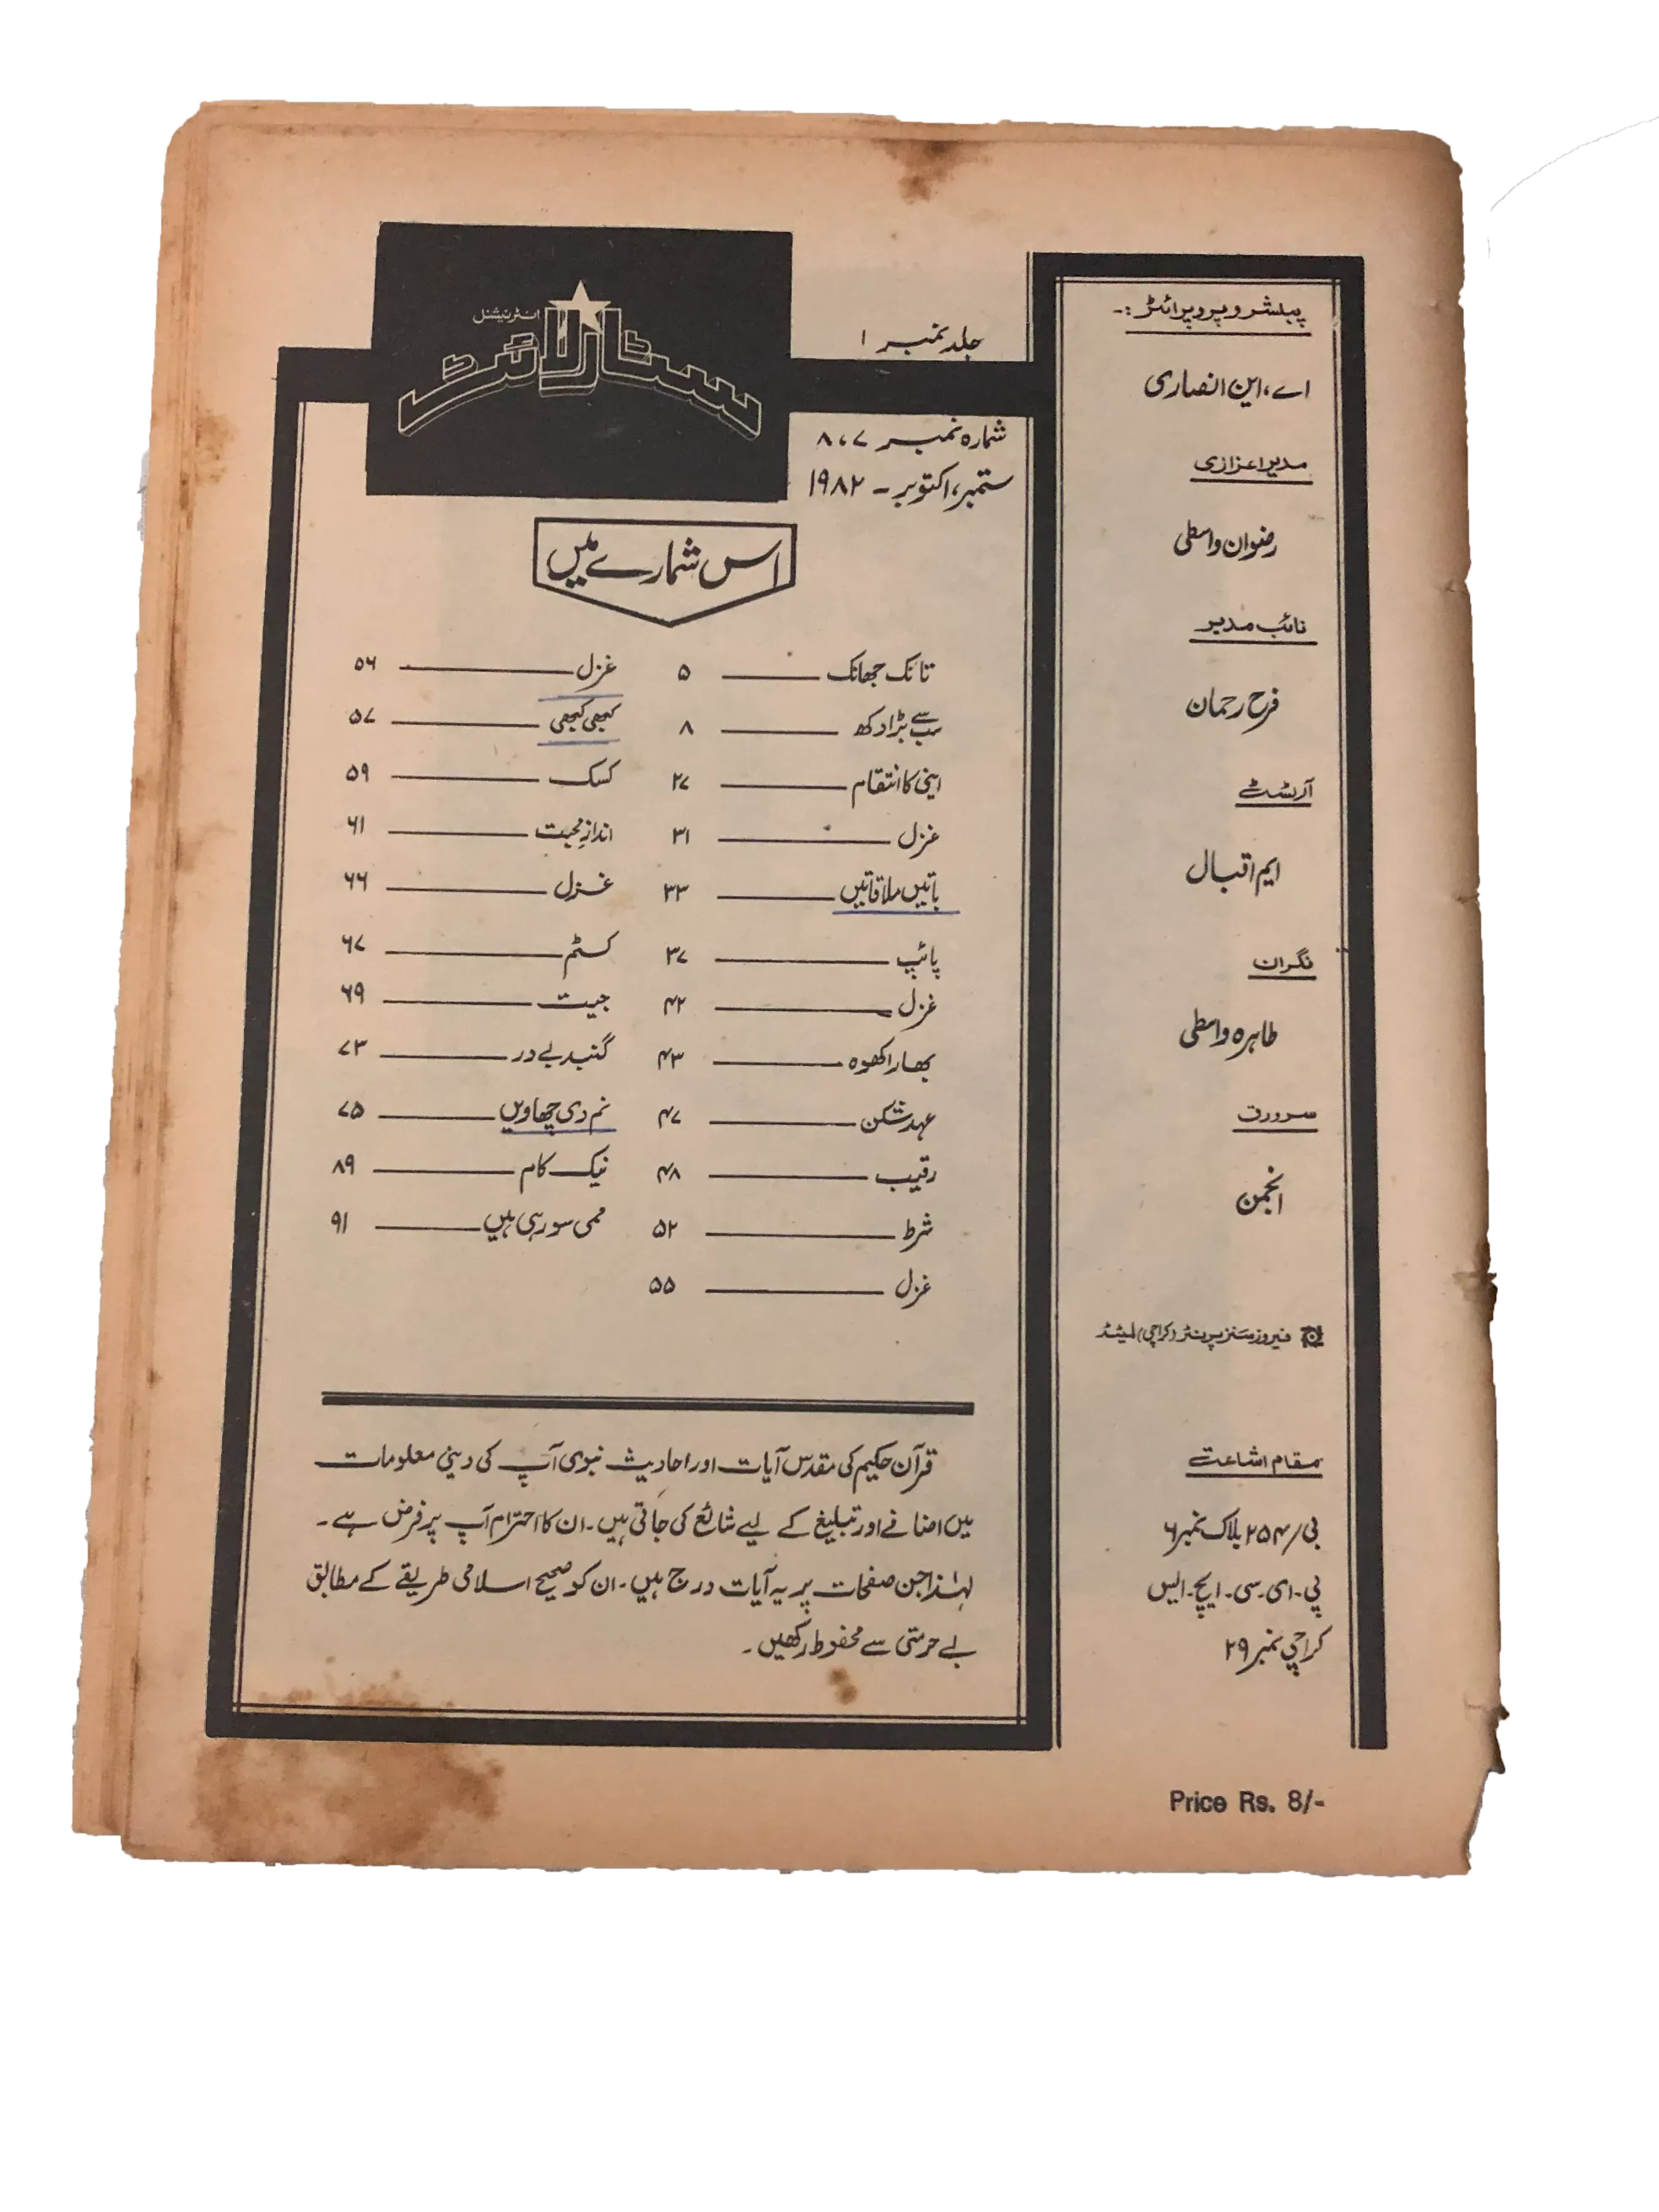 انٹرنیشنل
سٹارلائٹ
جلد نمبر ۱
شمارہ نمبر ۷،۸
ستمبر، اکتوبر - ۱۹۸۲
پبلشر و پروپرائٹر :-
اے، این انصاری
مدیر اعزازی
رضوان واسطی
نائب مدیر
فرح رحمان
آرٹسٹ
ایم اقبال
نگران
طاہرہ واسطی
سرورق
انجمن
فیروز سنز پرنٹر (کراچی) لمیٹڈ
مقام اشاعت
بی / ۲۵۴ بلاک نمبر ۶
پی۔ ای۔ سی۔ ایچ۔ ایس
کراچی نمبر ۲۹
اس شمارے میں
تانک جھانک ۵
سب سے بڑا دکھ ۸
اینی کا انتقام ۲۷
غزل ۳۱
باتیں ملاقاتیں ۳۳
پائپ ۳۷
غزل ۴۲
بھارا کھوہ ۴۳
عہد شکن ۴۷
رقیب ۴۸
شرط ۵۲
غزل ۵۵
غزل ۵۶
کبھی کبھی ۵۷
کسک ۵۹
اندازِ محبت ۶۱
غزل ۶۶
کسٹم ۶۷
جیت ۶۹
گنبد بے در ۷۳
نم دی چھاویں ۷۵
نیک کام ۸۹
ممی سو رہی ہیں ۹۱
قرآن حکیم کی مقدس آیات اور احادیث نبوی آپ کی دینی معلومات
میں اضافے اور تبلیغ کے لیے شائع کی جاتی ہیں۔ ان کا احترام آپ پر فرض ہے۔
لہٰذا جن صفحات پر یہ آیات درج ہیں۔ ان کو صحیح اسلامی طریقے کے مطابق
بے حرمتی سے محفوظ رکھیں۔
Price Rs. 8/-